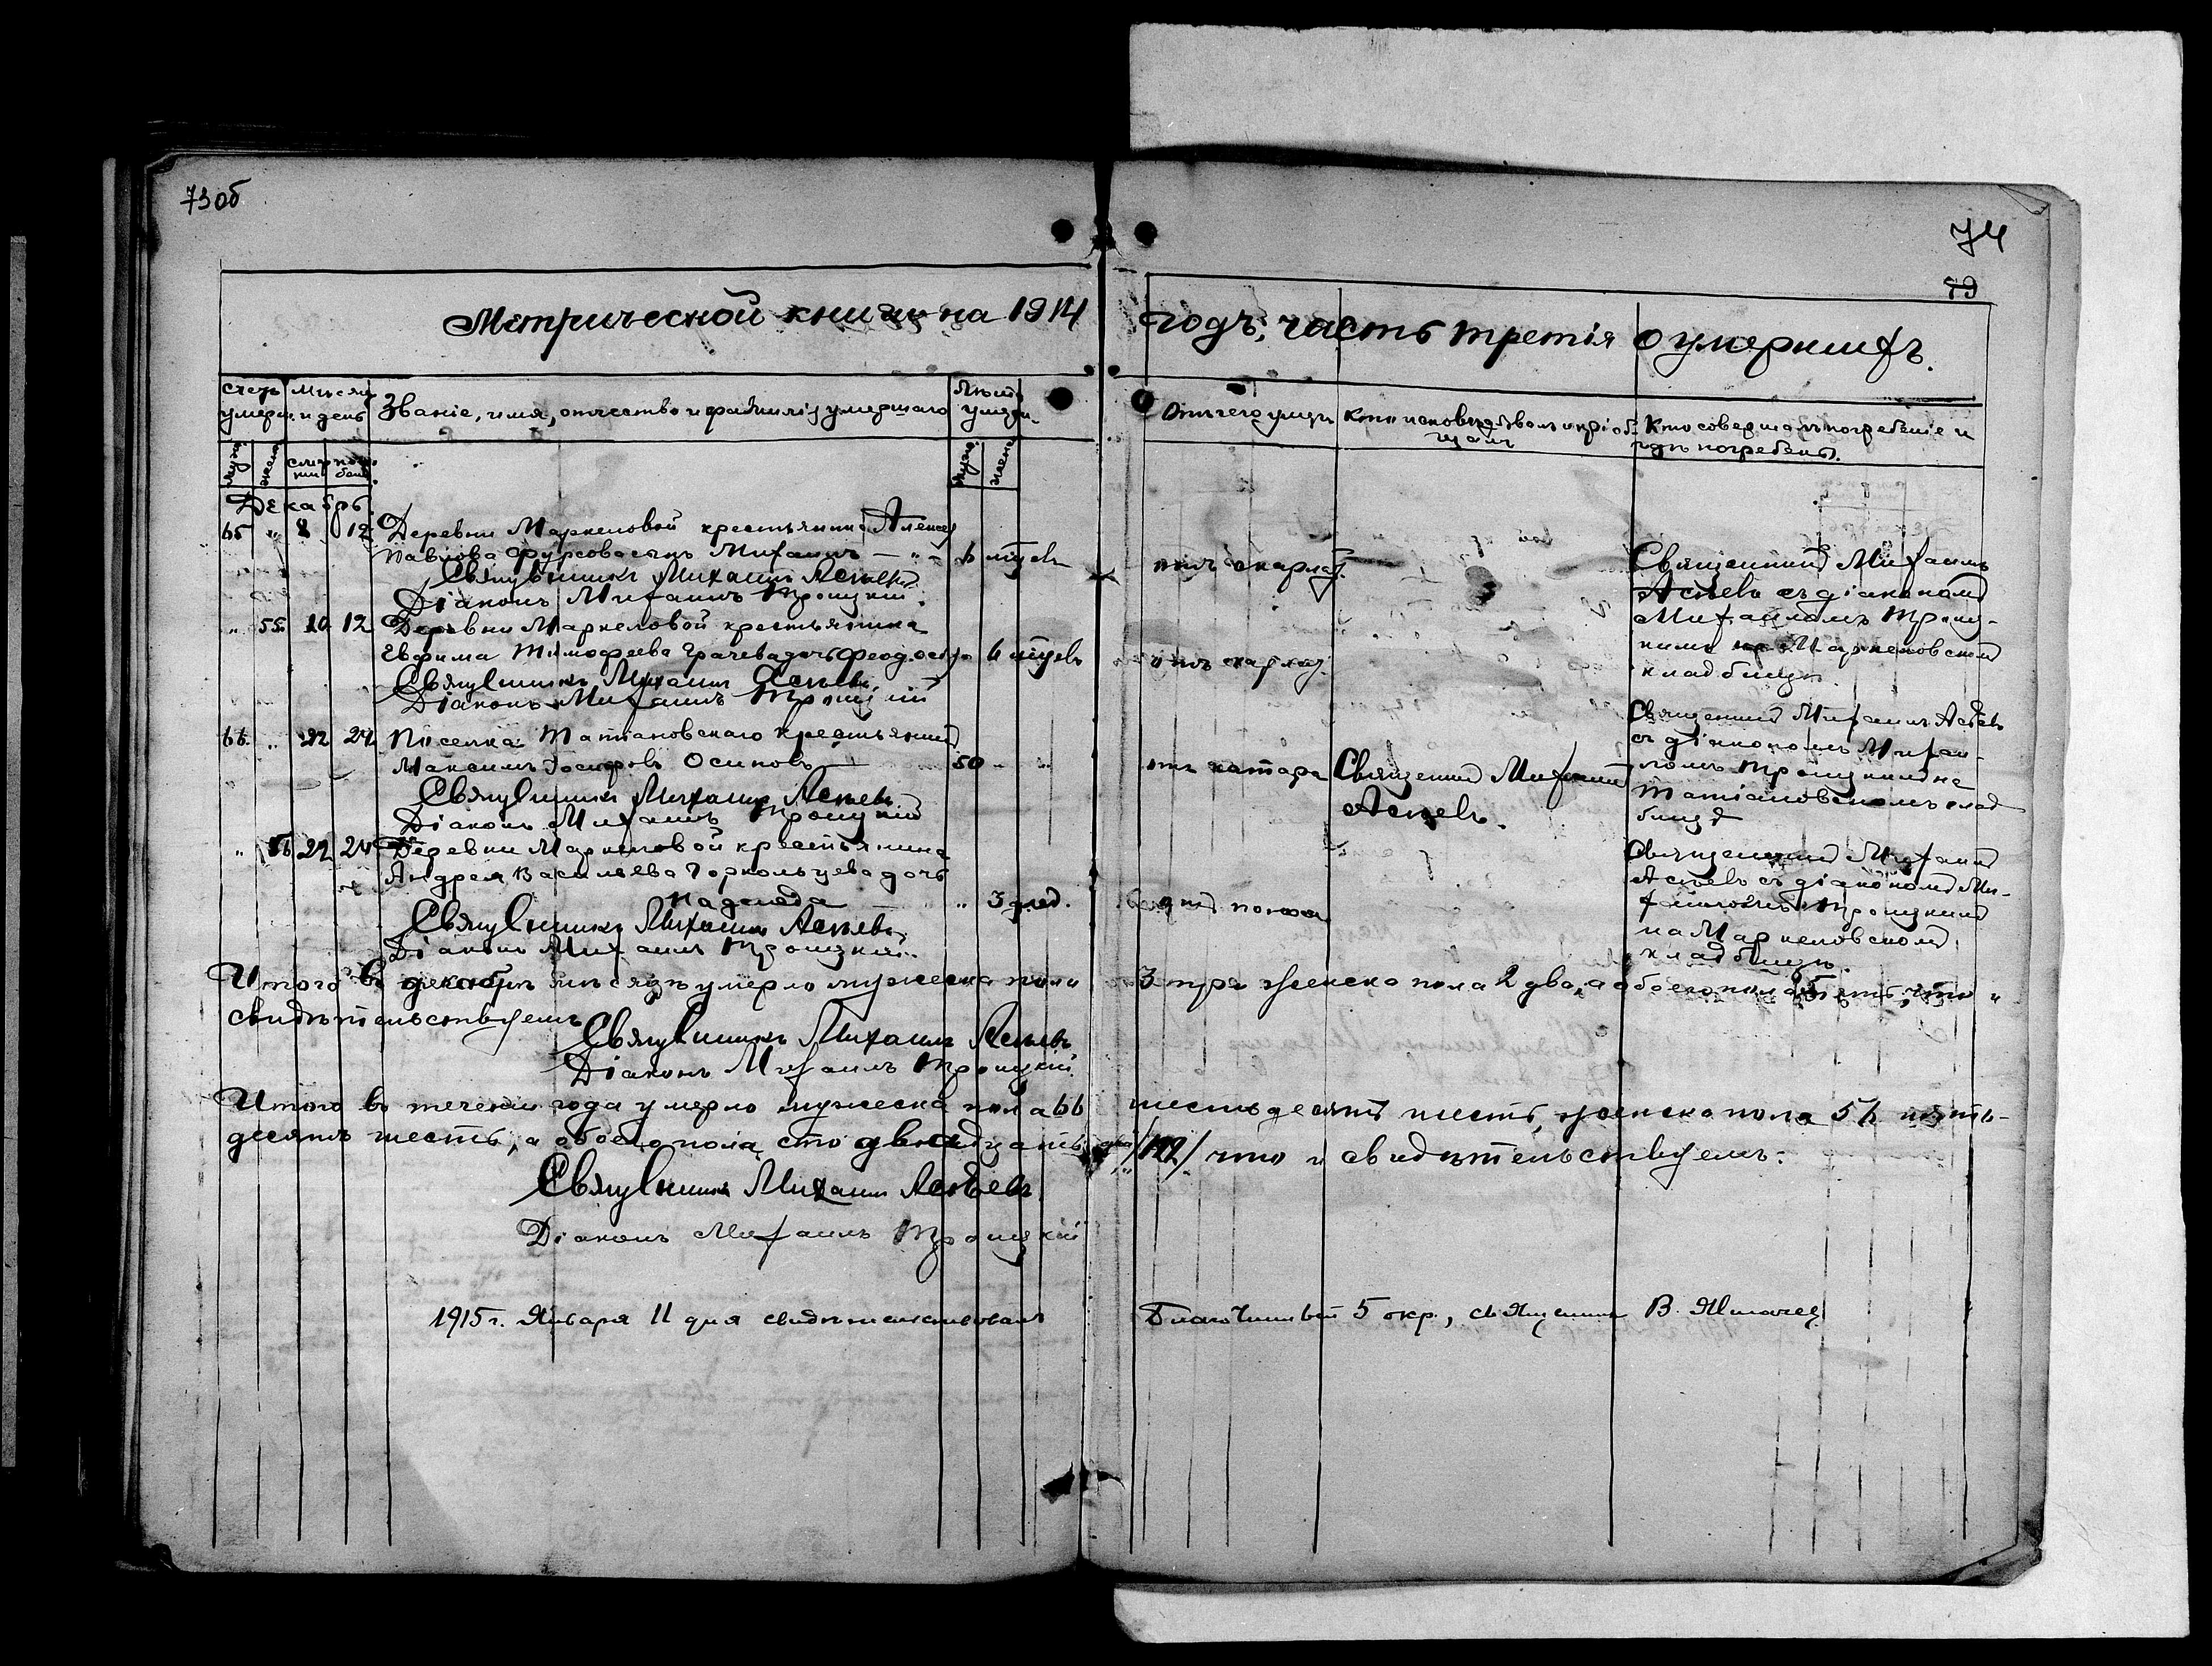 73об
74
79
Метрической книги на 1914 годъ, часть третія о умершихъ.
Счетъ умерш. Мѣсяцъ и день Званіе, имя, отчество и фамилія умершаго Лѣта умерш.
Отъ чего умеръ Кто исповѣдывалъ и пріоб-
щалъ
Кто совершалъ погребеніе и
гдѣ погребены.
муж. женск. смерти погребенія муж. женс.
Декабрь
65 " 8 12 Деревни Маркеловой крестьянина Алексѣя
Павлова Фурсова сынъ Михаилъ — " — 6 мѣсяц.
Священникъ Михаилъ Асѣевъ
Діаконъ Михаилъ Троицкій.
отъ скарлат.
Священникъ Михаилъ
Асѣевъ съ діакономъ
Михаиломъ Троиц-
кимъ на Маркеловскомъ
кладбищѣ
" 55. 10 12 Деревни Маркеловой крестьянина
Евфима Тимофеева Грачева дочь Феодосія 6 мѣсяц.
Священникъ Михаилъ Асѣевъ.
Діаконъ Михаилъ Троицкій
отъ скарлат.
66. " 22 24 Поселка Татіановскаго крестьянинъ
Максимъ Іосифовъ Осиповъ — 50 - "
Священникъ Михаилъ Асѣевъ
Діаконъ Михаилъ Троицкій
отъ катара Священникъ Михаилъ
Асѣевъ.
Священникъ Михаилъ Асѣевъ
съ діакономъ Михаи-
ломъ Троицкимъ на
Татіановскомъ клад-
бищѣ
" 56 22 24 Деревни Маркеловой крестьянина
Андрея Васильева дочь
Надежда " 3 нед.
Священникъ Михаилъ Асѣевъ
Діаконъ Михаилъ Троицкій.
отъ поноса
Священникъ Михаилъ
Асѣевъ съ діакономъ Ми-
хаиломъ Троицкимъ
на Маркеловскомъ
кладбищѣ.
Итого въ декабрѣ мѣсяцѣ умерло мужеска пола 3 три женска пола 2 два, а обоего пола 5 пять, что и
свидѣтельствуемъ
Священникъ Михаилъ Асѣевъ
Діаконъ Михаилъ Троицкій
Итого въ теченіи года умерло мужеска пола 66 шестьдесятъ шесть, женска пола 56 пять-
десятъ шесть, а обоего пола сто двадцать два /122/ что и свидѣтельствуемъ:
Священникъ Михаилъ Асѣевъ
Діаконъ Михаилъ Троицкій
1915 г. Января 11 дня свидѣтельствовалъ Благочинный 5 окр., священникъ В.